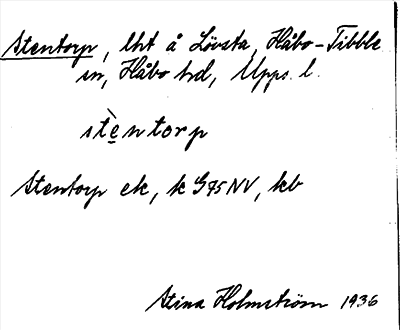 Stentorp, lht å Lövsta, Håbo-Tibble
sn, Håbo hd, Upps. l.
stèntorp
Stentorp ek, k G75NV, kb
Stina Holmström 1936